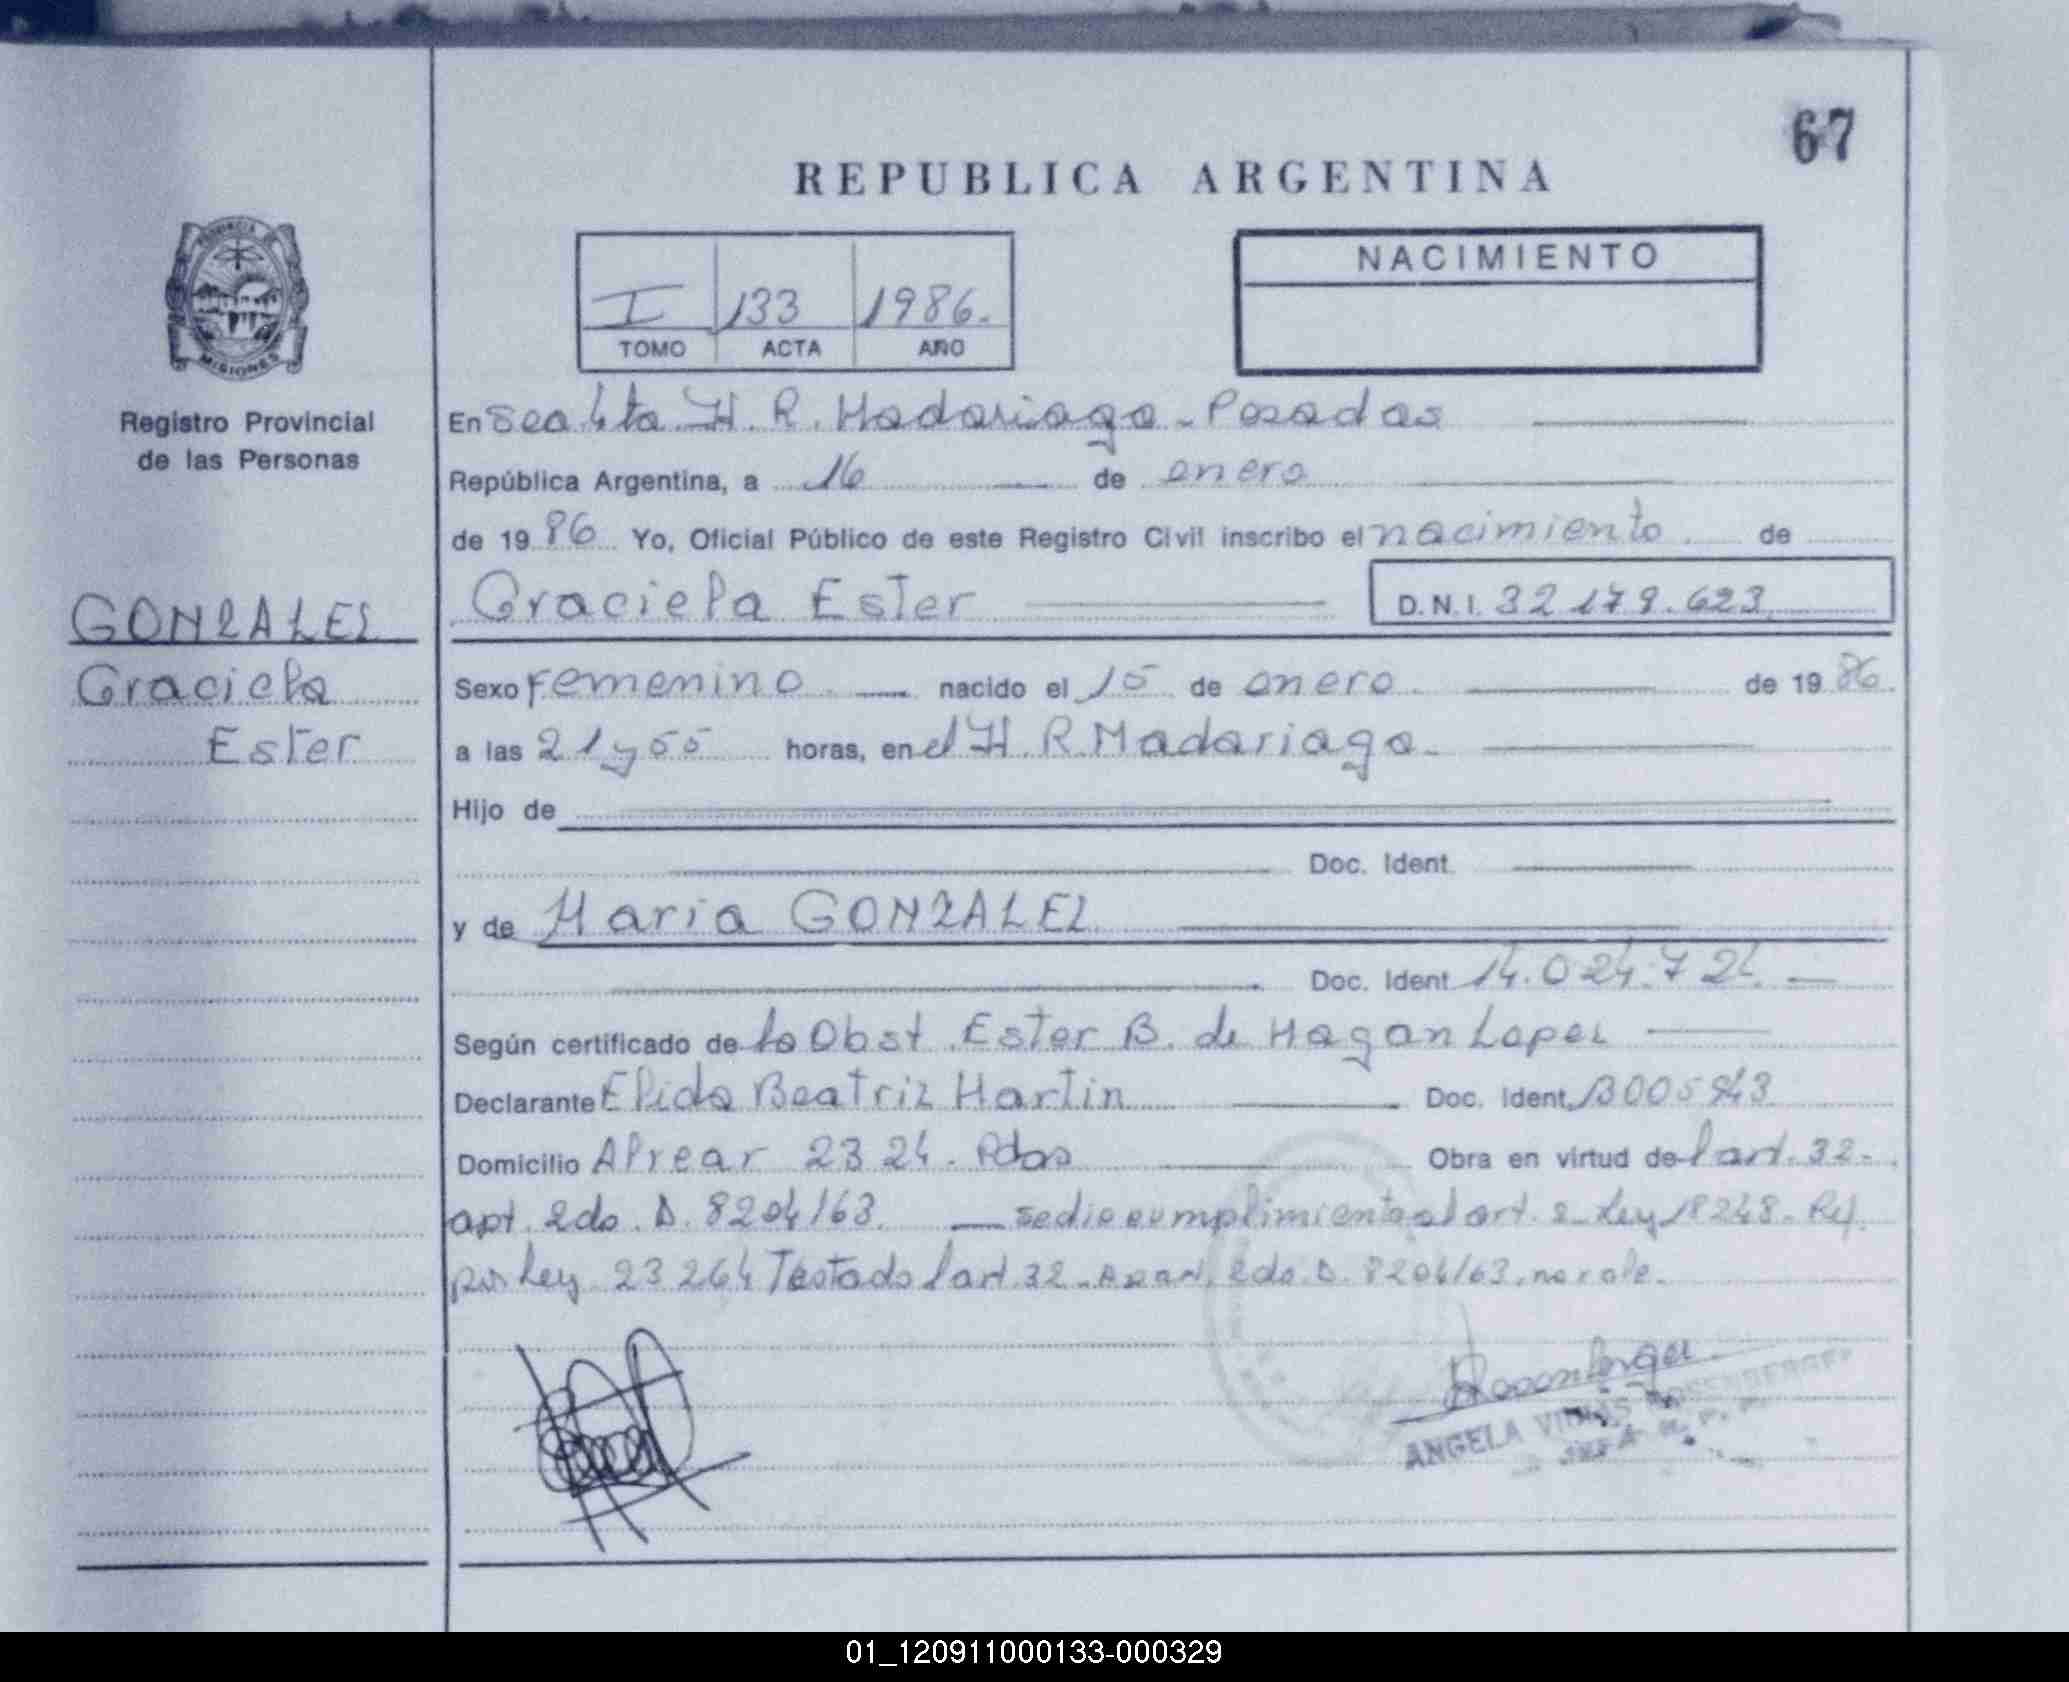 67
REPUBLICA ARGENTINA
PROVINCIA DE
MISIONES
Registro Provincial
de las Personas
I 133 1986.
TOMO ACTA AÑO
NACIMIENTO
En Sec. 4ta H. R. Madariaga - Posadas
República Argentina, a 16 de enero
de 1986 Yo, Oficial Público de este Registro Civil inscribo el nacimiento de
Graciela Ester D.N.I. 32.179.623
GONZALEZ
Graciela
Ester
Sexo Femenino nacido el 15 de enero de 1986
a las 21 y 55 horas, en el H. R. Madariaga.
Hijo de
Doc. Ident.
y de Maria GONZALEZ
Doc. Ident 14.024.724.
Según certificado de la Obst. Ester B. de Magan Lopez
Declarante Elida Beatriz Martin Doc. Ident. 3005943
Domicilio Alvear 2324. Pdas Obra en virtud del art. 32.
apt. 2do. D. 8204/63. se dio cumplimiento al art. 2 Ley 18248. Ref.
por Ley 23264 Testado l art. 32 2do. D. 8204/63. no vale.
ANGELA ROSENBERGER
JEFA R. P. P.
01_120911000133-000329